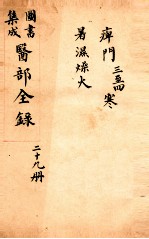 痺門 三至四 寒
暑濕燥火
圖書
集成
醫部全錄
二十九册